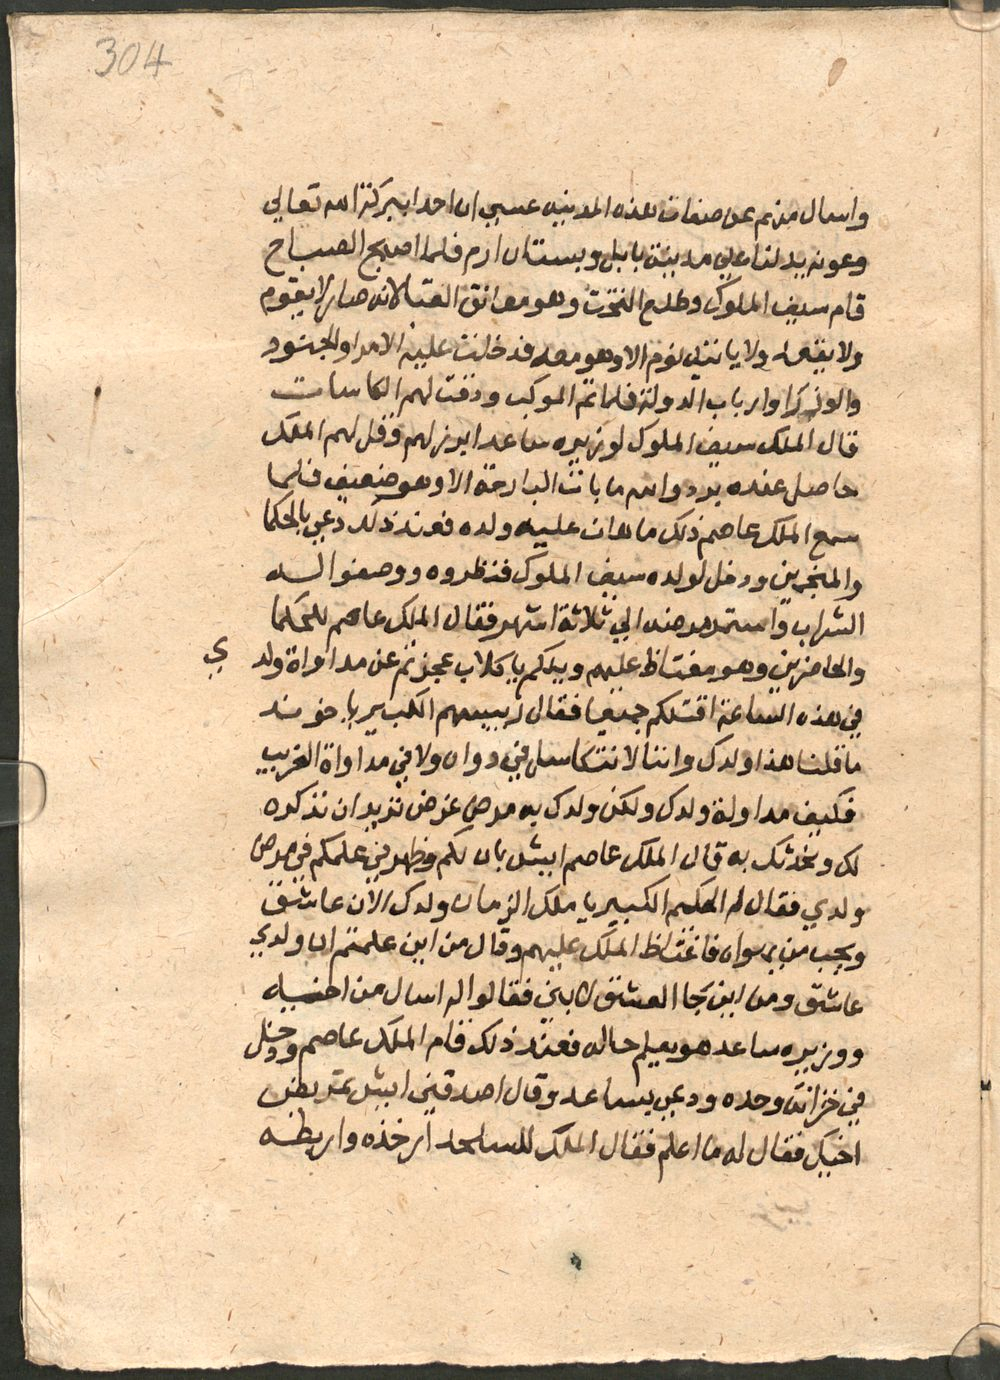 304
واسال منهم عن صفات هذه المدينه عسي ان احدا ببركة الله تعالي
وعونه يدلنا علي مدينة بابل وبستان ارم فلما اصبح الصباح
قام سيف الملوك وطلع التخت وهو معانق القبا لانه صار لا يقوم
ولا يقعد ولا ياتيه نوم الا وهو معه فدخلت عليه الامرا والجنود
والوزرا وارباب الدولة فلما تم الموكب ووقف لهم الكاسات
قال الملك سيف الملوك لوزيره ساعد ابرز لهم وقل لهم الملك
حاصل عنده برد والله ما بات البارحة الا وهو ضعيف فلما
سمع الملك عاصم ذلك ما هان عليه ولده فعند ذلك دعي بالحكما
والمنجمين ودخل لولده سيف الملوك فنظروه ووصفوا له
الشراب واستمر مرضه الي ثلاثة اشهر فقال الملك عاصم للحكما
والحاضرين وهو مغتاظ عليهم ويلكم يا كلاب عجزتم عن مداواة ولدي
في هذه الساعة اقتلكم جميعا فقال رييسهم الكبير يا خوند
ما قلنا هذا ولدك واننا لا نتكاسل في دواه ولا في مداواة الغريب
فكيف مداواة ولدك ولكن ولدك به مرض غرض تريد ان نذكره
لك ونحدثك به قال الملك عاصم ايش بان لكم وظهر في علمكم في مرض
ولدي فقال له الحكيم الكبير يا ملك الزمان ولدك الان عاشق
ويحب من يهواه فاغتاظ الملك عليهم وقال من اين علمتم ان ولدي
عاشق ومن اين جا العشق لابني فقالوا له اسال من اخيه
ووزيره ساعد هو يعلم حاله فعند ذلك قام الملك عاصم ودخل
في خزانة وحده ودعي بساعد وقال اصدقني ايش مرض
اخيك فقال له ما اعلم فقال الملك للسياف خذه واربطه